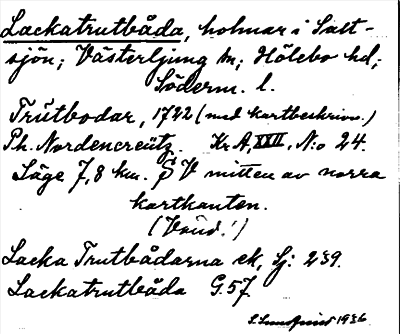 Lackatrutbåda, holmar i Salt-
sjön; Västerljung sn; Hölebo hd;
Söderm. l.
Trutbodar, 1722 (med kartbeskrivn.)
Ph. Nordencreütz. Kr. A, XXII, N:o 24.
Läge 7,8 km. S V mitten av norra
kartkanten.
(Vänd!)
Lacka Trutbådarna ek, Sj: 239.
Lackatrutbåda G.57.
S. Lundquist 1936